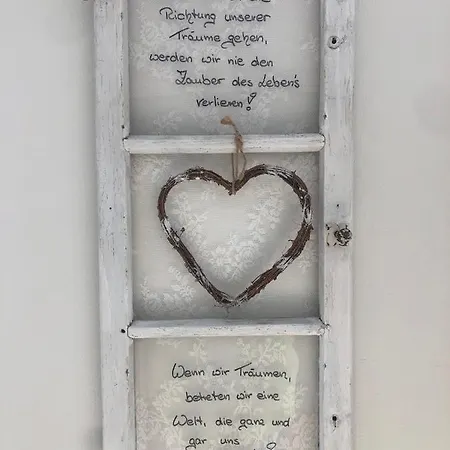 Richtung unserer
Träume gehen,
werden wir nie den
Zauber des Leben's
verlieren!
Wenn wir Träumen,
beteten wir eine
Welt, die ganz und
gar uns